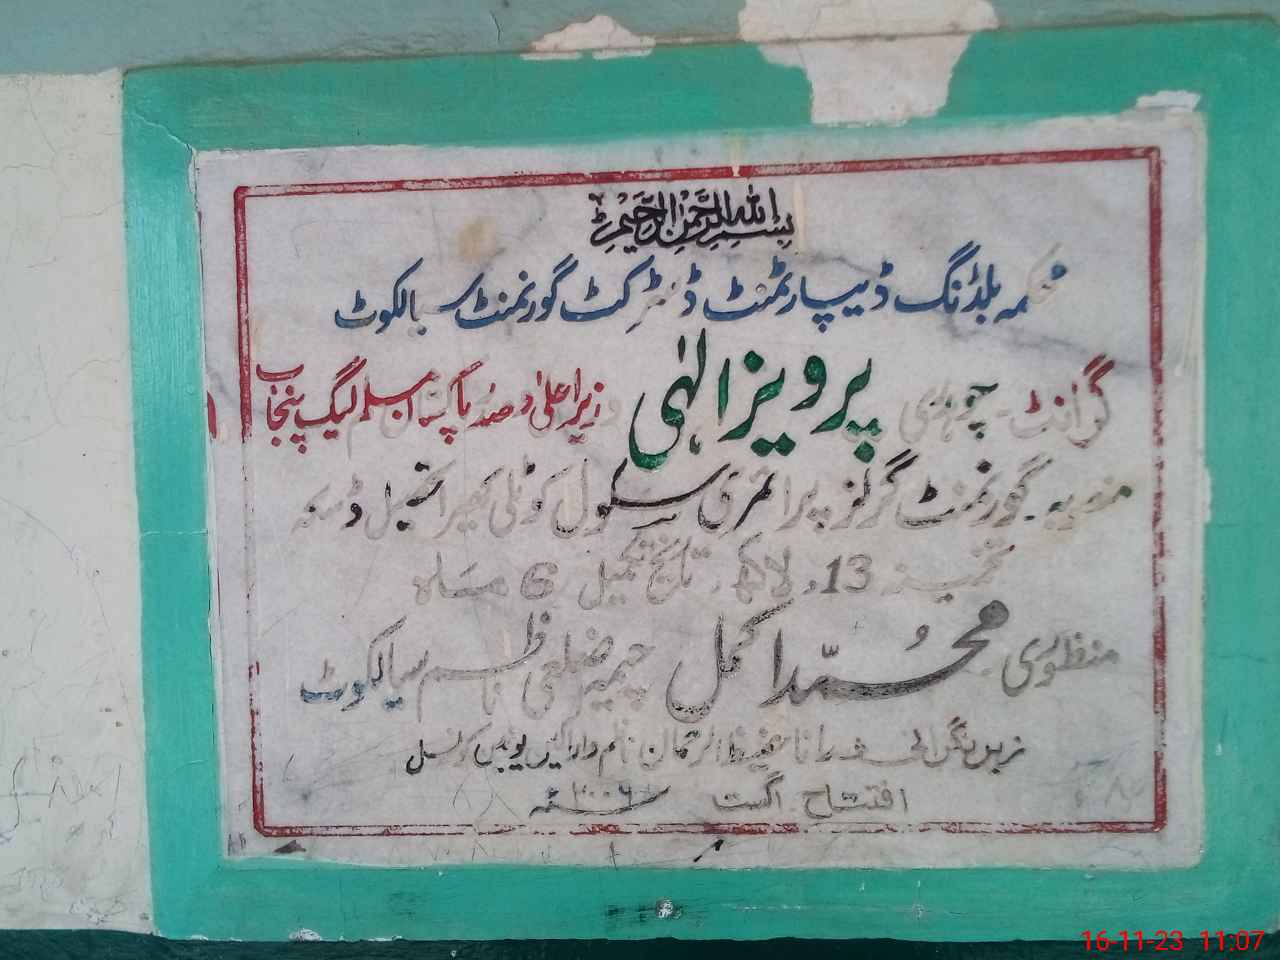 بسم اللہ الرحمٰن الرحیم
محکمہ بلڈنگ ڈیپارٹمنٹ ڈسٹرکٹ گورنمنٹ سیالکوٹ
گرانٹ۔ چوہدری پرویز الٰہی وزیر اعلیٰ و صدر پاکستان مسلم لیگ پنجاب
منصوبہ۔ گورنمنٹ گرلز پرائمری سکول کوٹلی تحصیل ڈسکہ
تخمینہ 13۔ لاکھ۔ تاریخ تکمیل 6 ماہ
منظوری۔ محمد اکمل چیمہ ضلعی ناظم سیالکوٹ
زیر نگرانی۔ رانا حفیظ الرحمان ناظم یونین کونسل
افتتاح۔ اگست ۲۰۰۶ء
16-11-23 11:07